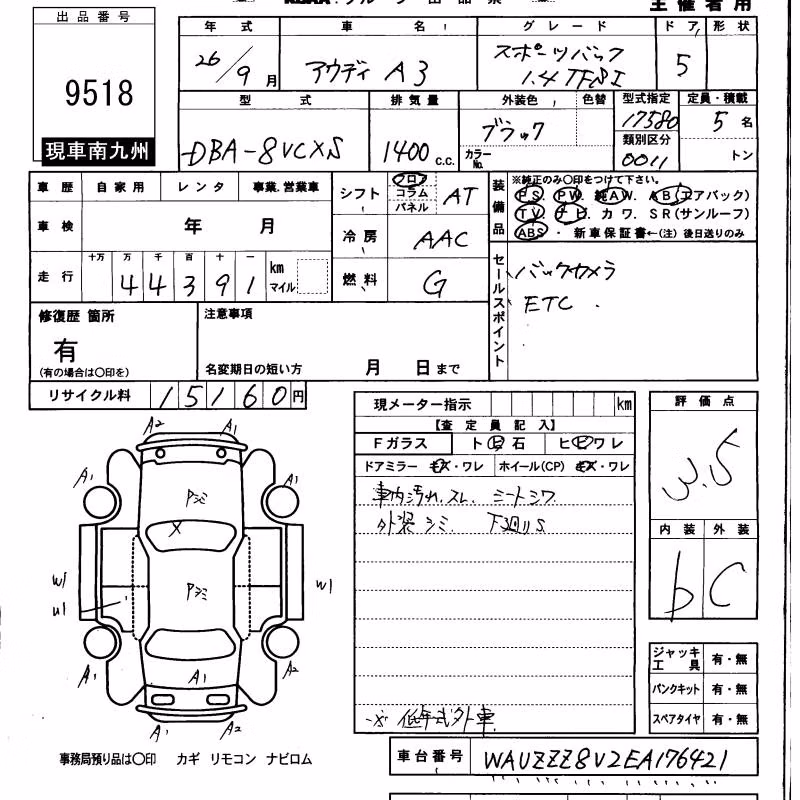 主催者用
出品番号
9518
現車南九州
年式 車名 グレード ドア 形状
26/9月 アウディ A3 スポーツバック 1.4TFSI 5
型式 排気量 外装色 色替 型式指定 定員・積載
DBA-8VCXS 1400 c.c. ブラック カラーNo. 17580 5名
類別区分
0011 トン
車歴 自家用 レンタ 事業.営業車
シフト フロア コラム パネル AT
車検 年 月
冷房 AAC
走行 十万 万 千 百 十 一
44391 km マイル
燃料 G
装備品 ※純正のみ〇印をつけて下さい。
P.S. P.W. 純A.W. A.B(エアバック)
T.V. ナビ. カワ. SR(サンルーフ)
ABS・新車保証書←(注)後日送りのみ
セールスポイント
バックカメラ
ETC.
修復歴 箇所
有
(有の場合は〇印を)
注意事項
名変期日の短い方 月 日まで
リサイクル料 15160円
現メーター指示 km
【査定員記入】
Fガラス ト㋪石 ヒビワレ
ドアミラー キズ・ワレ ホイール(CP) キズ・ワレ
車内汚れ.スレ. シートシワ
外装シミ. 下廻りS
低年式外車
評価点
3.5
内装 外装
b C
A2 A1
A1 A1
Pシミ
X
Pシミ
W1
U1
W1
A1 A1 A2
A1 A2
ジャッキ工具 有・無
パンクキット 有・無
スペアタイヤ 有・無
事務局預り品は〇印 カギ リモコン ナビロム
車台番号 WAUZZZ8V2EA176421